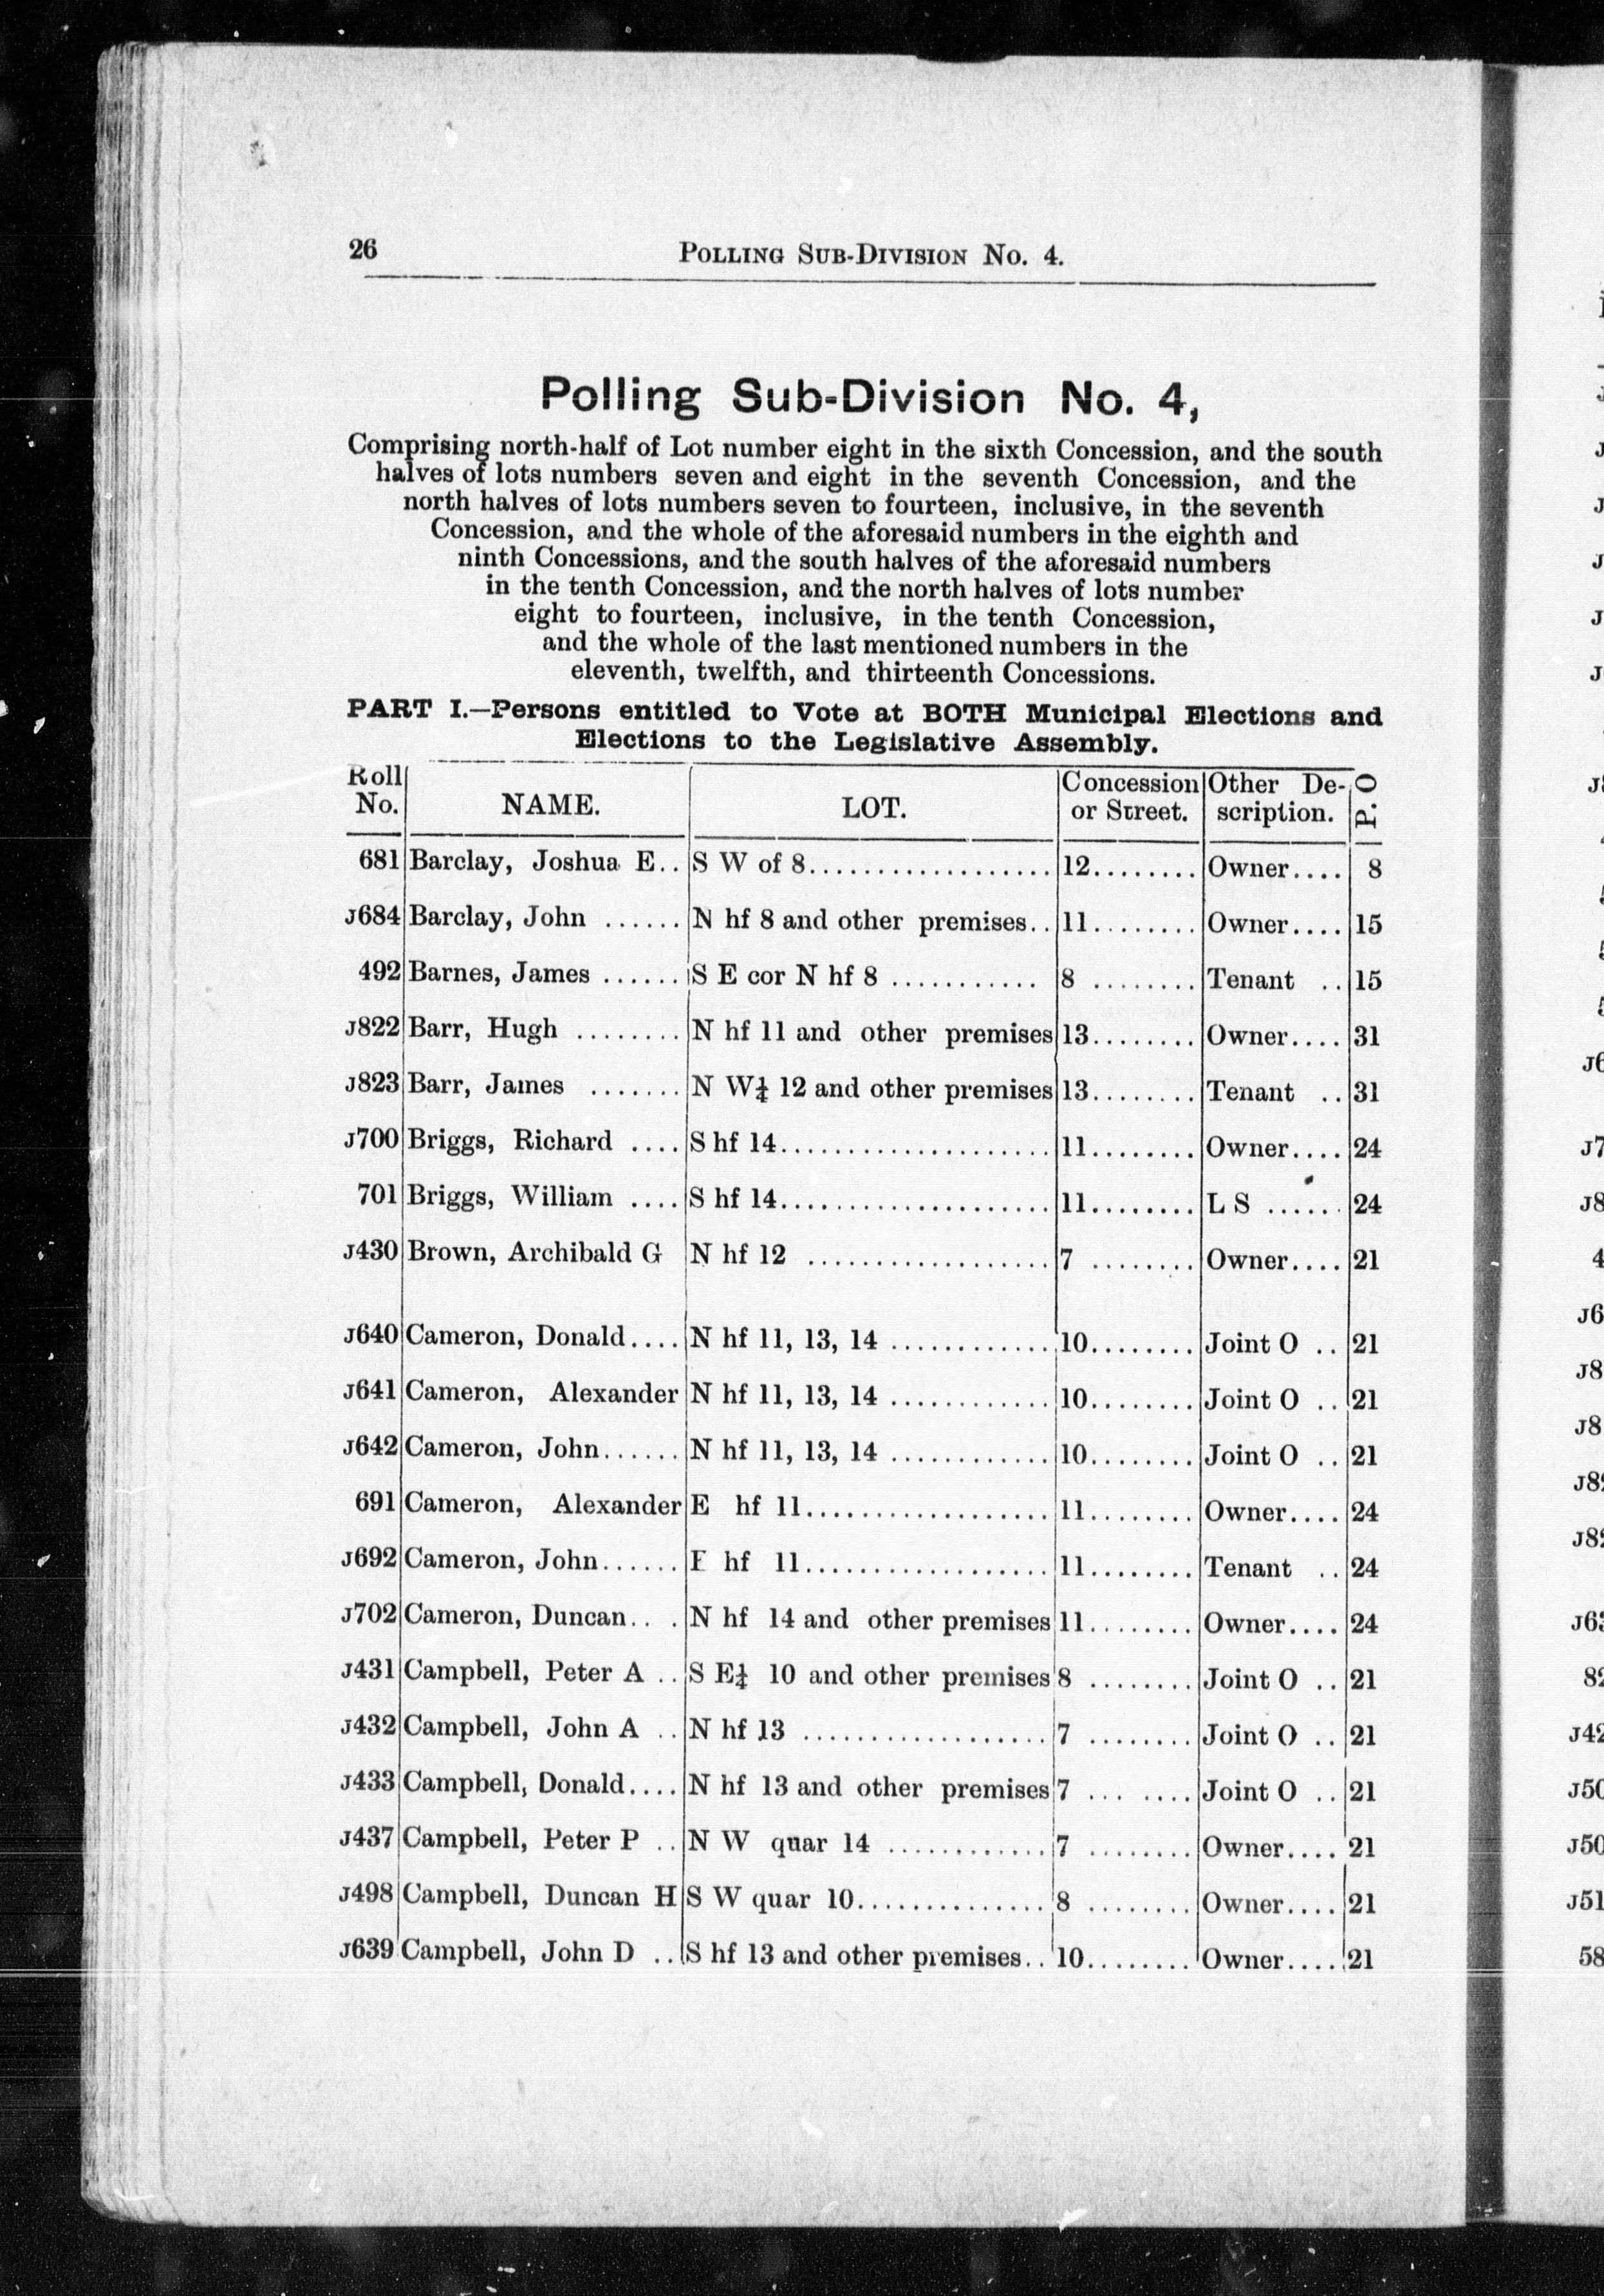 26 POLLING SUB-DIVISION No. 4.
Polling Sub-Division No. 4,
Comprising north-half of Lot number eight in the sixth Concession, and the south
halves of lots numbers seven and eight in the seventh Concession, and the
north halves of lots numbers seven to fourteen, inclusive, in the seventh
Concession, and the whole of the aforesaid numbers in the eighth and
ninth Concessions, and the south halves of the aforesaid numbers
in the tenth Concession, and the north halves of lots number
eight to fourteen, inclusive, in the tenth Concession,
and the whole of the last mentioned numbers in the
eleventh, twelfth, and thirteenth Concessions.
PART I.—Persons entitled to Vote at BOTH Municipal Elections and
Elections to the Legislative Assembly.
Roll No. NAME. LOT. Concession or Street. Other De-scription. P.O
681 Barclay, Joshua E.. S W of 8.................. 12........ Owner.... 8
J684 Barclay, John ...... N hf 8 and other premises.. 11........ Owner.... 15
492 Barnes, James ...... S E cor N hf 8 ........... 8 ........ Tenant .. 15
J822 Barr, Hugh ........ N hf 11 and other premises 13........ Owner.... 31
J823 Barr, James ....... N W¼ 12 and other premises 13........ Tenant .. 31
J700 Briggs, Richard .... S hf 14.................... 11........ Owner.... 24
701 Briggs, William .... S hf 14.................... 11........ L S ...... 24
J430 Brown, Archibald G N hf 12 .................. 7 ........ Owner.... 21
J640 Cameron, Donald.... N hf 11, 13, 14 ............ 10........ Joint O .. 21
J641 Cameron, Alexander N hf 11, 13, 14 ............ 10........ Joint O .. 21
J642 Cameron, John...... N hf 11, 13, 14 ............ 10........ Joint O .. 21
691 Cameron, Alexander E hf 11.................. 11........ Owner.... 24
J692 Cameron, John...... E hf 11.................. 11........ Tenant .. 24
J702 Cameron, Duncan.. . N hf 14 and other premises 11........ Owner.... 24
J431 Campbell, Peter A .. S E¼ 10 and other premises 8 ........ Joint O .. 21
J432 Campbell, John A .. N hf 13 .................. 7 ........ Joint O .. 21
J433 Campbell, Donald.... N hf 13 and other premises 7 ... .... Joint O .. 21
J437 Campbell, Peter P .. N W quar 14 ............ 7 ........ Owner.... 21
J498 Campbell, Duncan H S W quar 10.............. 8 ........ Owner.... 21
J639 Campbell, John D .. S hf 13 and other premises.. 10........ Owner.... 21